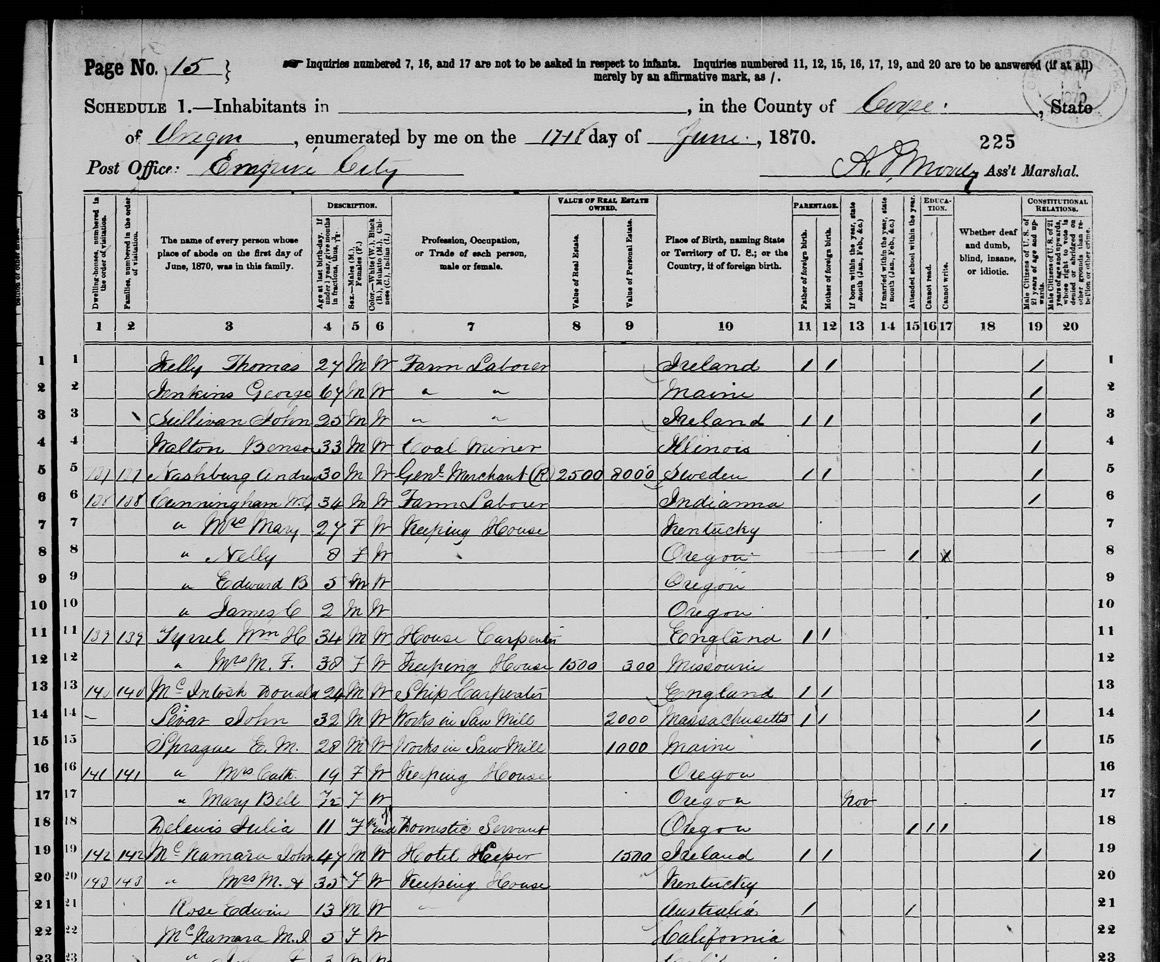 Page No. 15 }
Inquiries numbered 7, 16, and 17 are not to be asked in respect to infants. Inquiries numbered 11, 12, 15, 16, 17, 19, and 20 are to be answered (if at all)
merely by an affirmative mark, as /.
SCHEDULE 1.—Inhabitants in , in the County of Coose , State
of Oregon , enumerated by me on the 17-18 day of June , 1870.
225
Post Office: Empire City
A. P. Moody Ass't Marshal.
DESCRIPTION. VALUE OF REAL ESTATE OWNED. PARENTAGE. EDUCATION. CONSTITUTIONAL RELATIONS.
Dwelling-houses, numbered in the order of visitation.
Families, numbered in the order of visitation.
The name of every person whose place of abode on the first day of June, 1870, was in this family.
Age at last birth-day. If under 1 year, give months in fractions, thus, 3/12
Sex.—Males (M.), Females (F.)
Color.—White (W.), Black (B.), Mulatto (M.), Chinese (C.), Indian (I.)
Profession, Occupation, or Trade of each person, male or female.
Value of Real Estate.
Value of Personal Estate.
Place of Birth, naming State or Territory of U. S.; or the Country, if of foreign birth.
Father of foreign birth.
Mother of foreign birth.
If born within the year, state month (Jan., Feb., &c.)
If married within the year, state month (Jan., Feb., &c.)
Attended school within the year.
Cannot read.
Cannot write.
Whether deaf and dumb, blind, insane, or idiotic.
Male Citizens of U. S. of 21 years of age and upwards.
Male Citizens of U. S. of 21 years of age and upwards, whose right to vote is denied or abridged on other grounds than rebellion or other crime.
1 2 3 4 5 6 7 8 9 10 11 12 13 14 15 16 17 18 19 20
1 1 Kelly Thomas 27 M W Farm Laborer Ireland / / / 1
2 2 Jenkins George 67 M W " " Maine / 2
3 3 Sullivan John 25 M W " " Ireland / / / 3
4 4 Walton Benson 33 M W Coal Miner Illinois / 4
5 5 137 137 Nashburg Andrew 30 M W Genl Merchant (R) 2500 8000 Sweden / / / 5
6 6 138 138 Cunningham 34 M W Farm Laborer Indianna / 6
7 7 " Mrs Mary 27 F W Keeping House Kentucky 7
8 8 " Nelly 8 F W Oregon / X 8
9 9 " Edward B 5 M W Oregon 9
10 10 " James C 2 M W Oregon 10
11 11 139 139 Tyrrel Wm H 34 M W House Carpenter England / / 11
12 12 " Mrs M. F. 38 F W Keeping House 1500 300 Missourie 12
13 13 140 140 McIntosh Donald 24 M W Ship Carpenter England / / 13
14 14 John 32 M W Works in Saw Mill 2000 Massachusetts / / / 14
15 15 Sprague E. M. 28 M W Works in Saw Mill 1000 Maine / 15
16 16 141 141 " Mrs Cath. 19 F W Keeping House Oregon 16
17 17 " Mary Bell 7/12 F W Oregon Nov 17
18 18 Julia 11 F Domestic Servant Oregon / / / 18
19 19 142 142 McNamara John 47 M W Hotel Keeper 1500 Ireland / / / 19
20 20 143 143 " Mrs M. A 35 F W Keeping House Kentucky 20
21 21 Rose Edwin 13 M W Australia / / 21
22 22 McNamara M. J 5 F W California 22
23 23 23